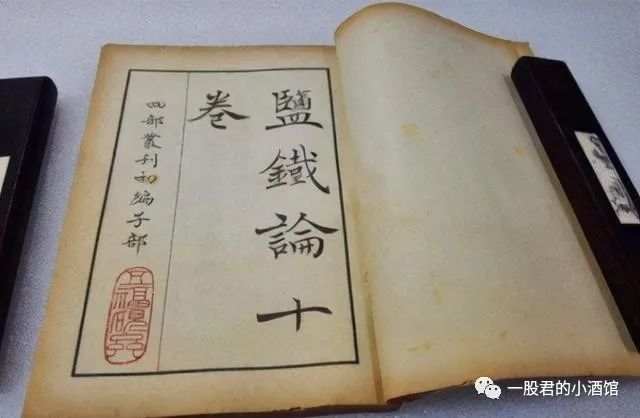 鹽鐵論十
卷
四部叢刊初編子部
一股君的小酒馆